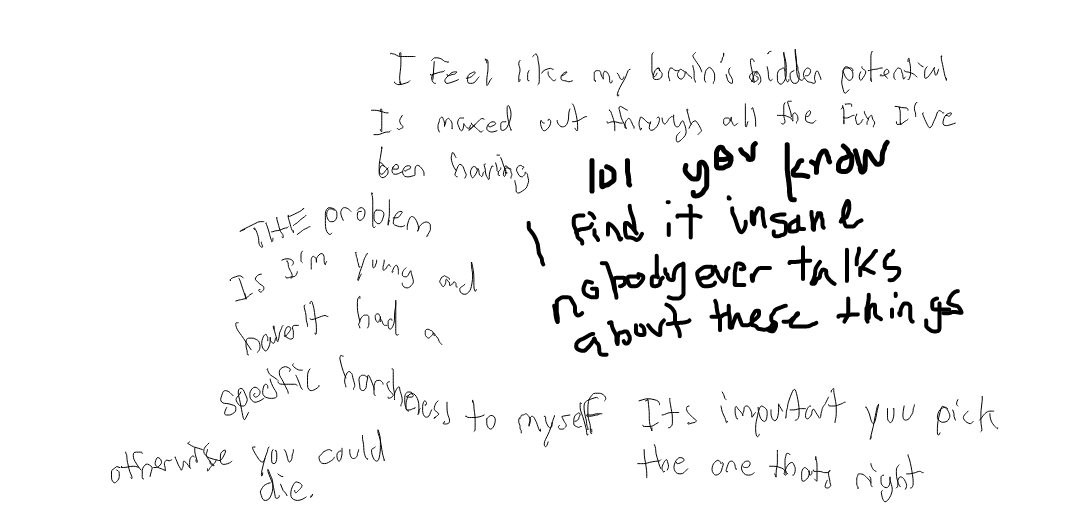 I Feel like my brain's hidden potential
Is maxed out through all the Fun I've
been having
lol you know
I find it insane
nobody ever talks
about these things
THE problem
Is I'm young and
haven't had a
specific harshness to myself
otherwise you could
die.
Its important you pick
the one thats right